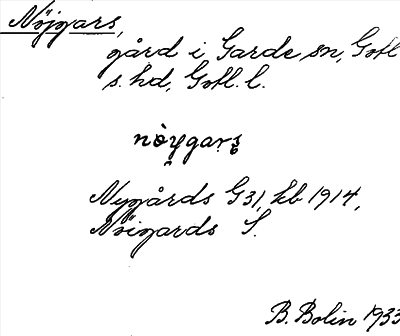 Nöjgars,
gård i Garde sn, Gotl
s. hd, Gotl. l.
nöygarş
Nygårds G 31, kb 1914,
Nöigards S.
B. Bolin 1933